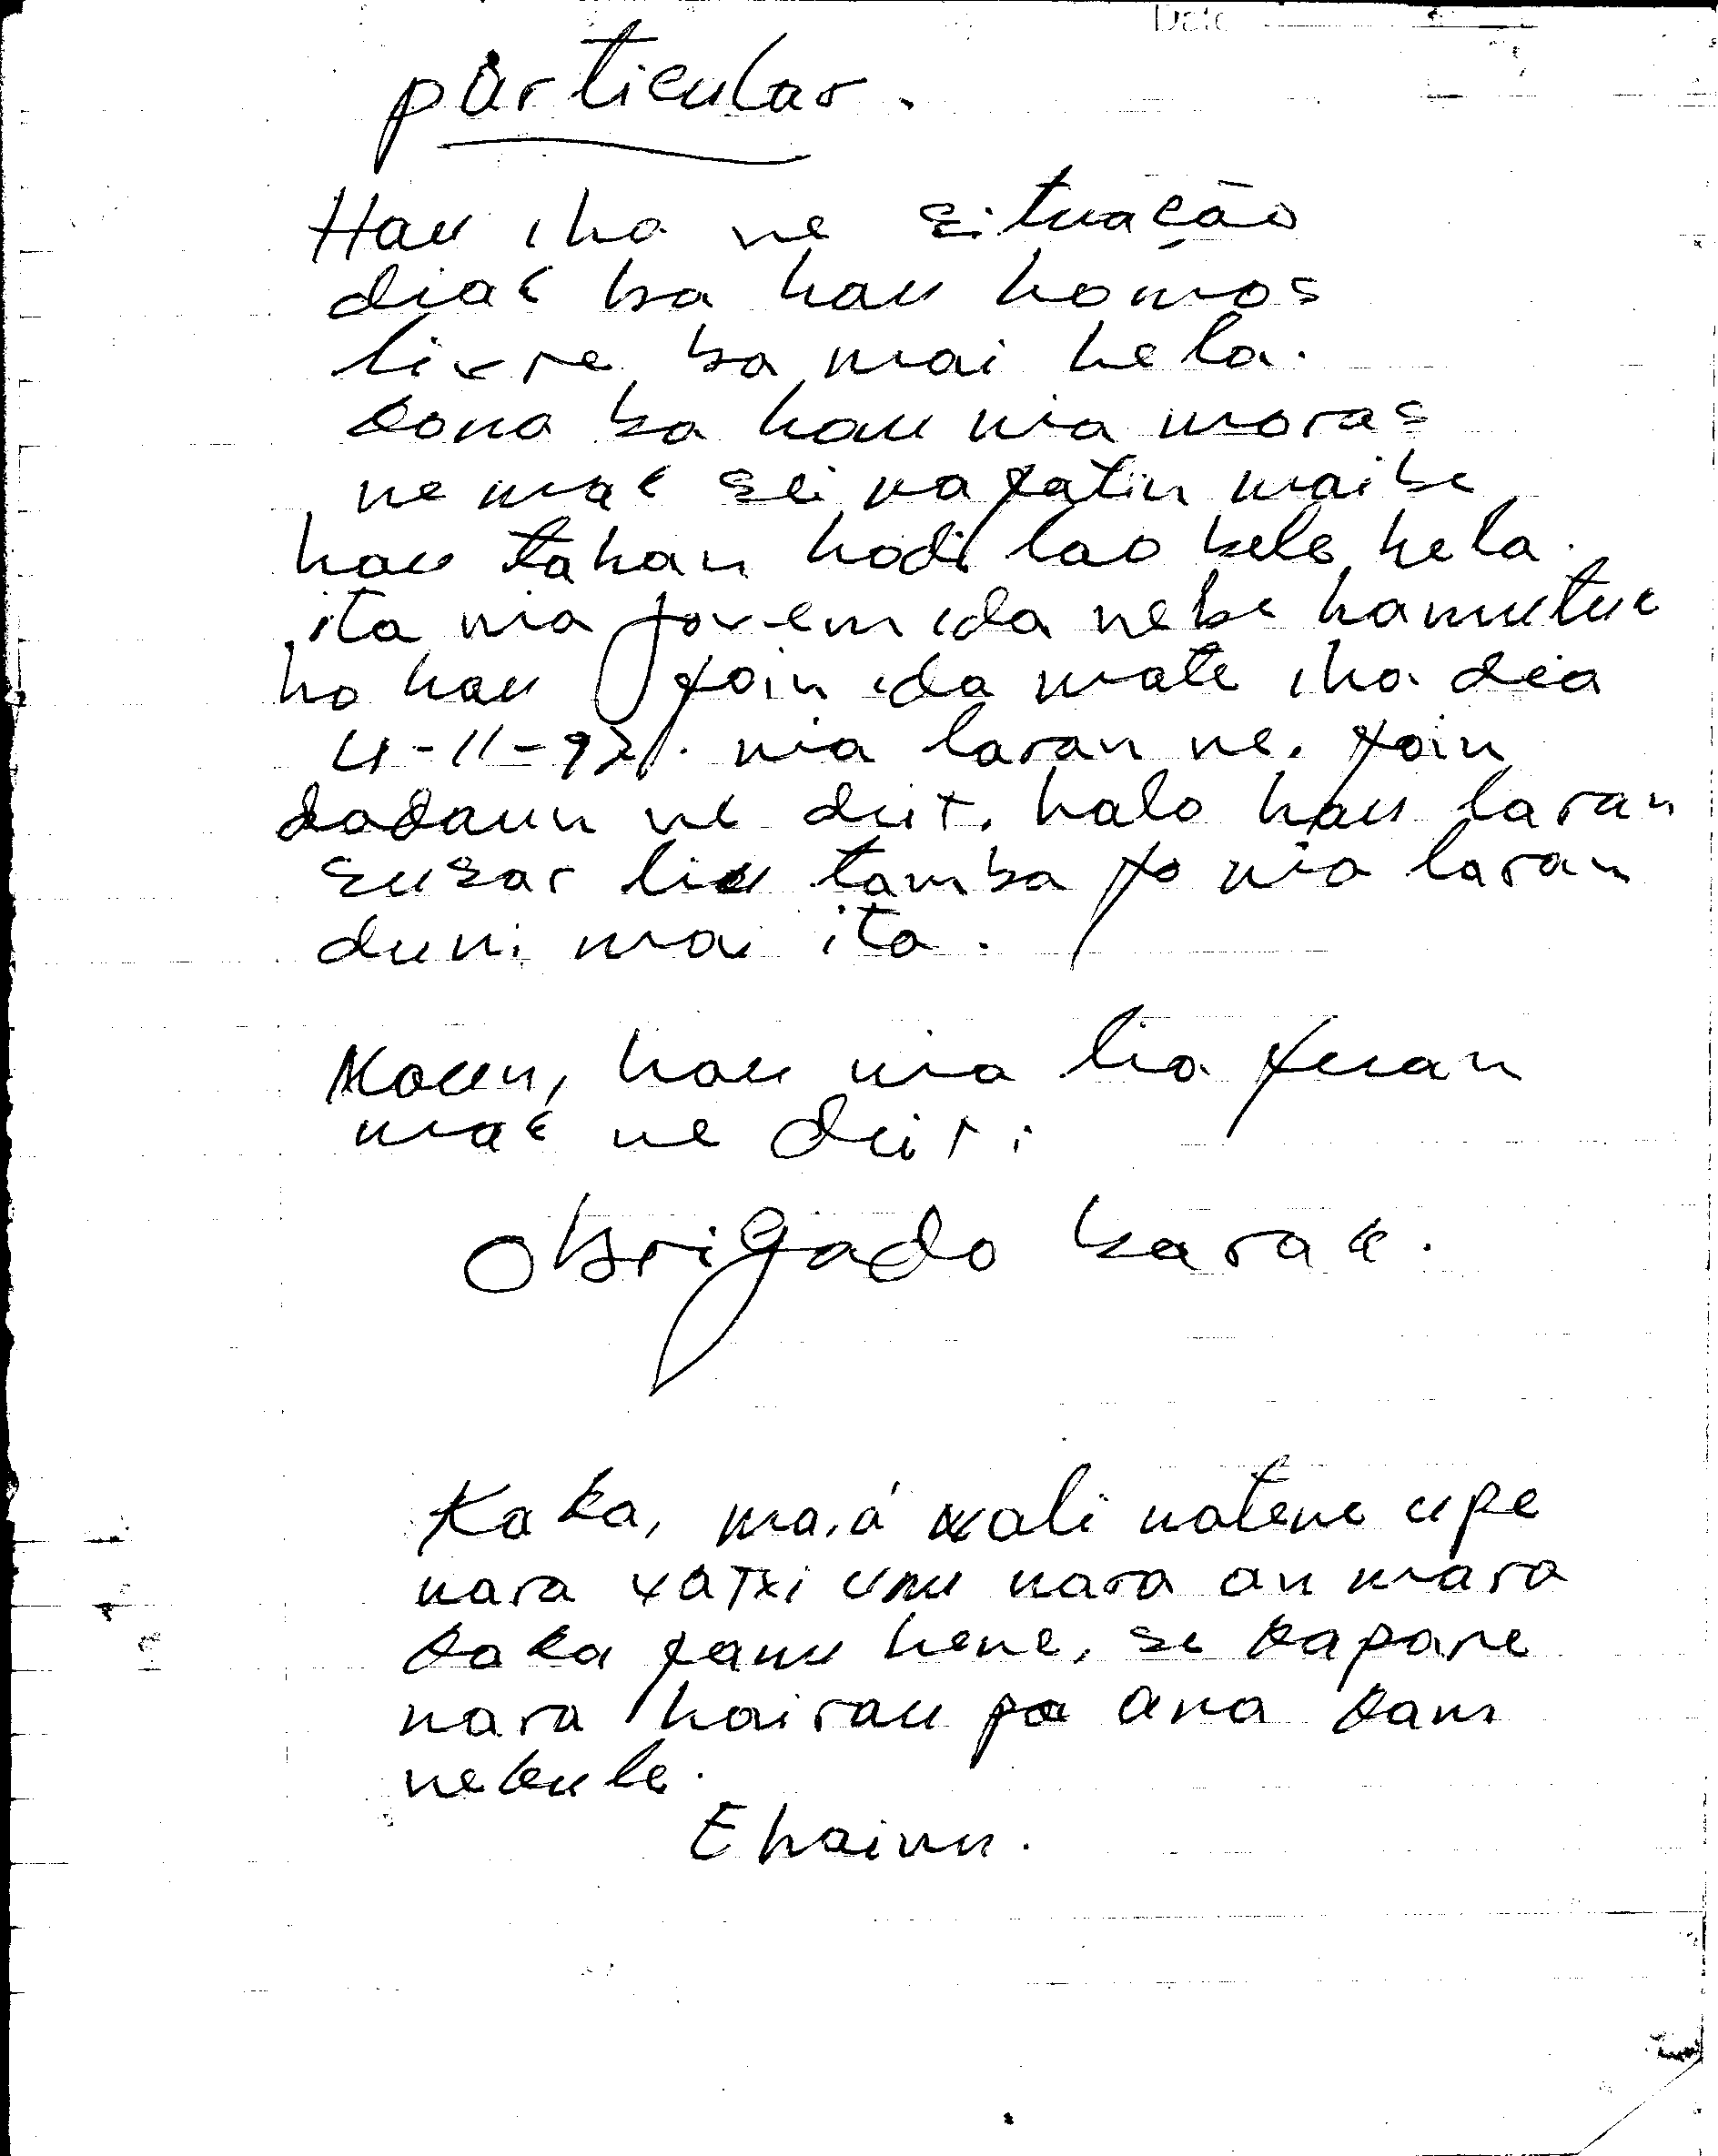 Date
particular.
Hau iha ne situação
diak ba hau homos
livre ba mai hela.
kona ba hau nia moras
ne mak sei nafatin maibe
hau tahan hodi lao bele hela.
ita nia jovem ida nebe hamutuk
ho hau foin ida mate iha dia
4-11-97. nia laran ne. foin
dadaun ne deit. halo hau laran
susar liu tamba fo nia laran
duni mai ita.
Maun, hau nia lia fuan
mak ne deit.
Obrigado barak.
Kaka, ma,á wali natene upe
nara umu nara an mara
kaka fanu hene, se kapare
nara hairau pa ana kam
nekule.
Ehainu.